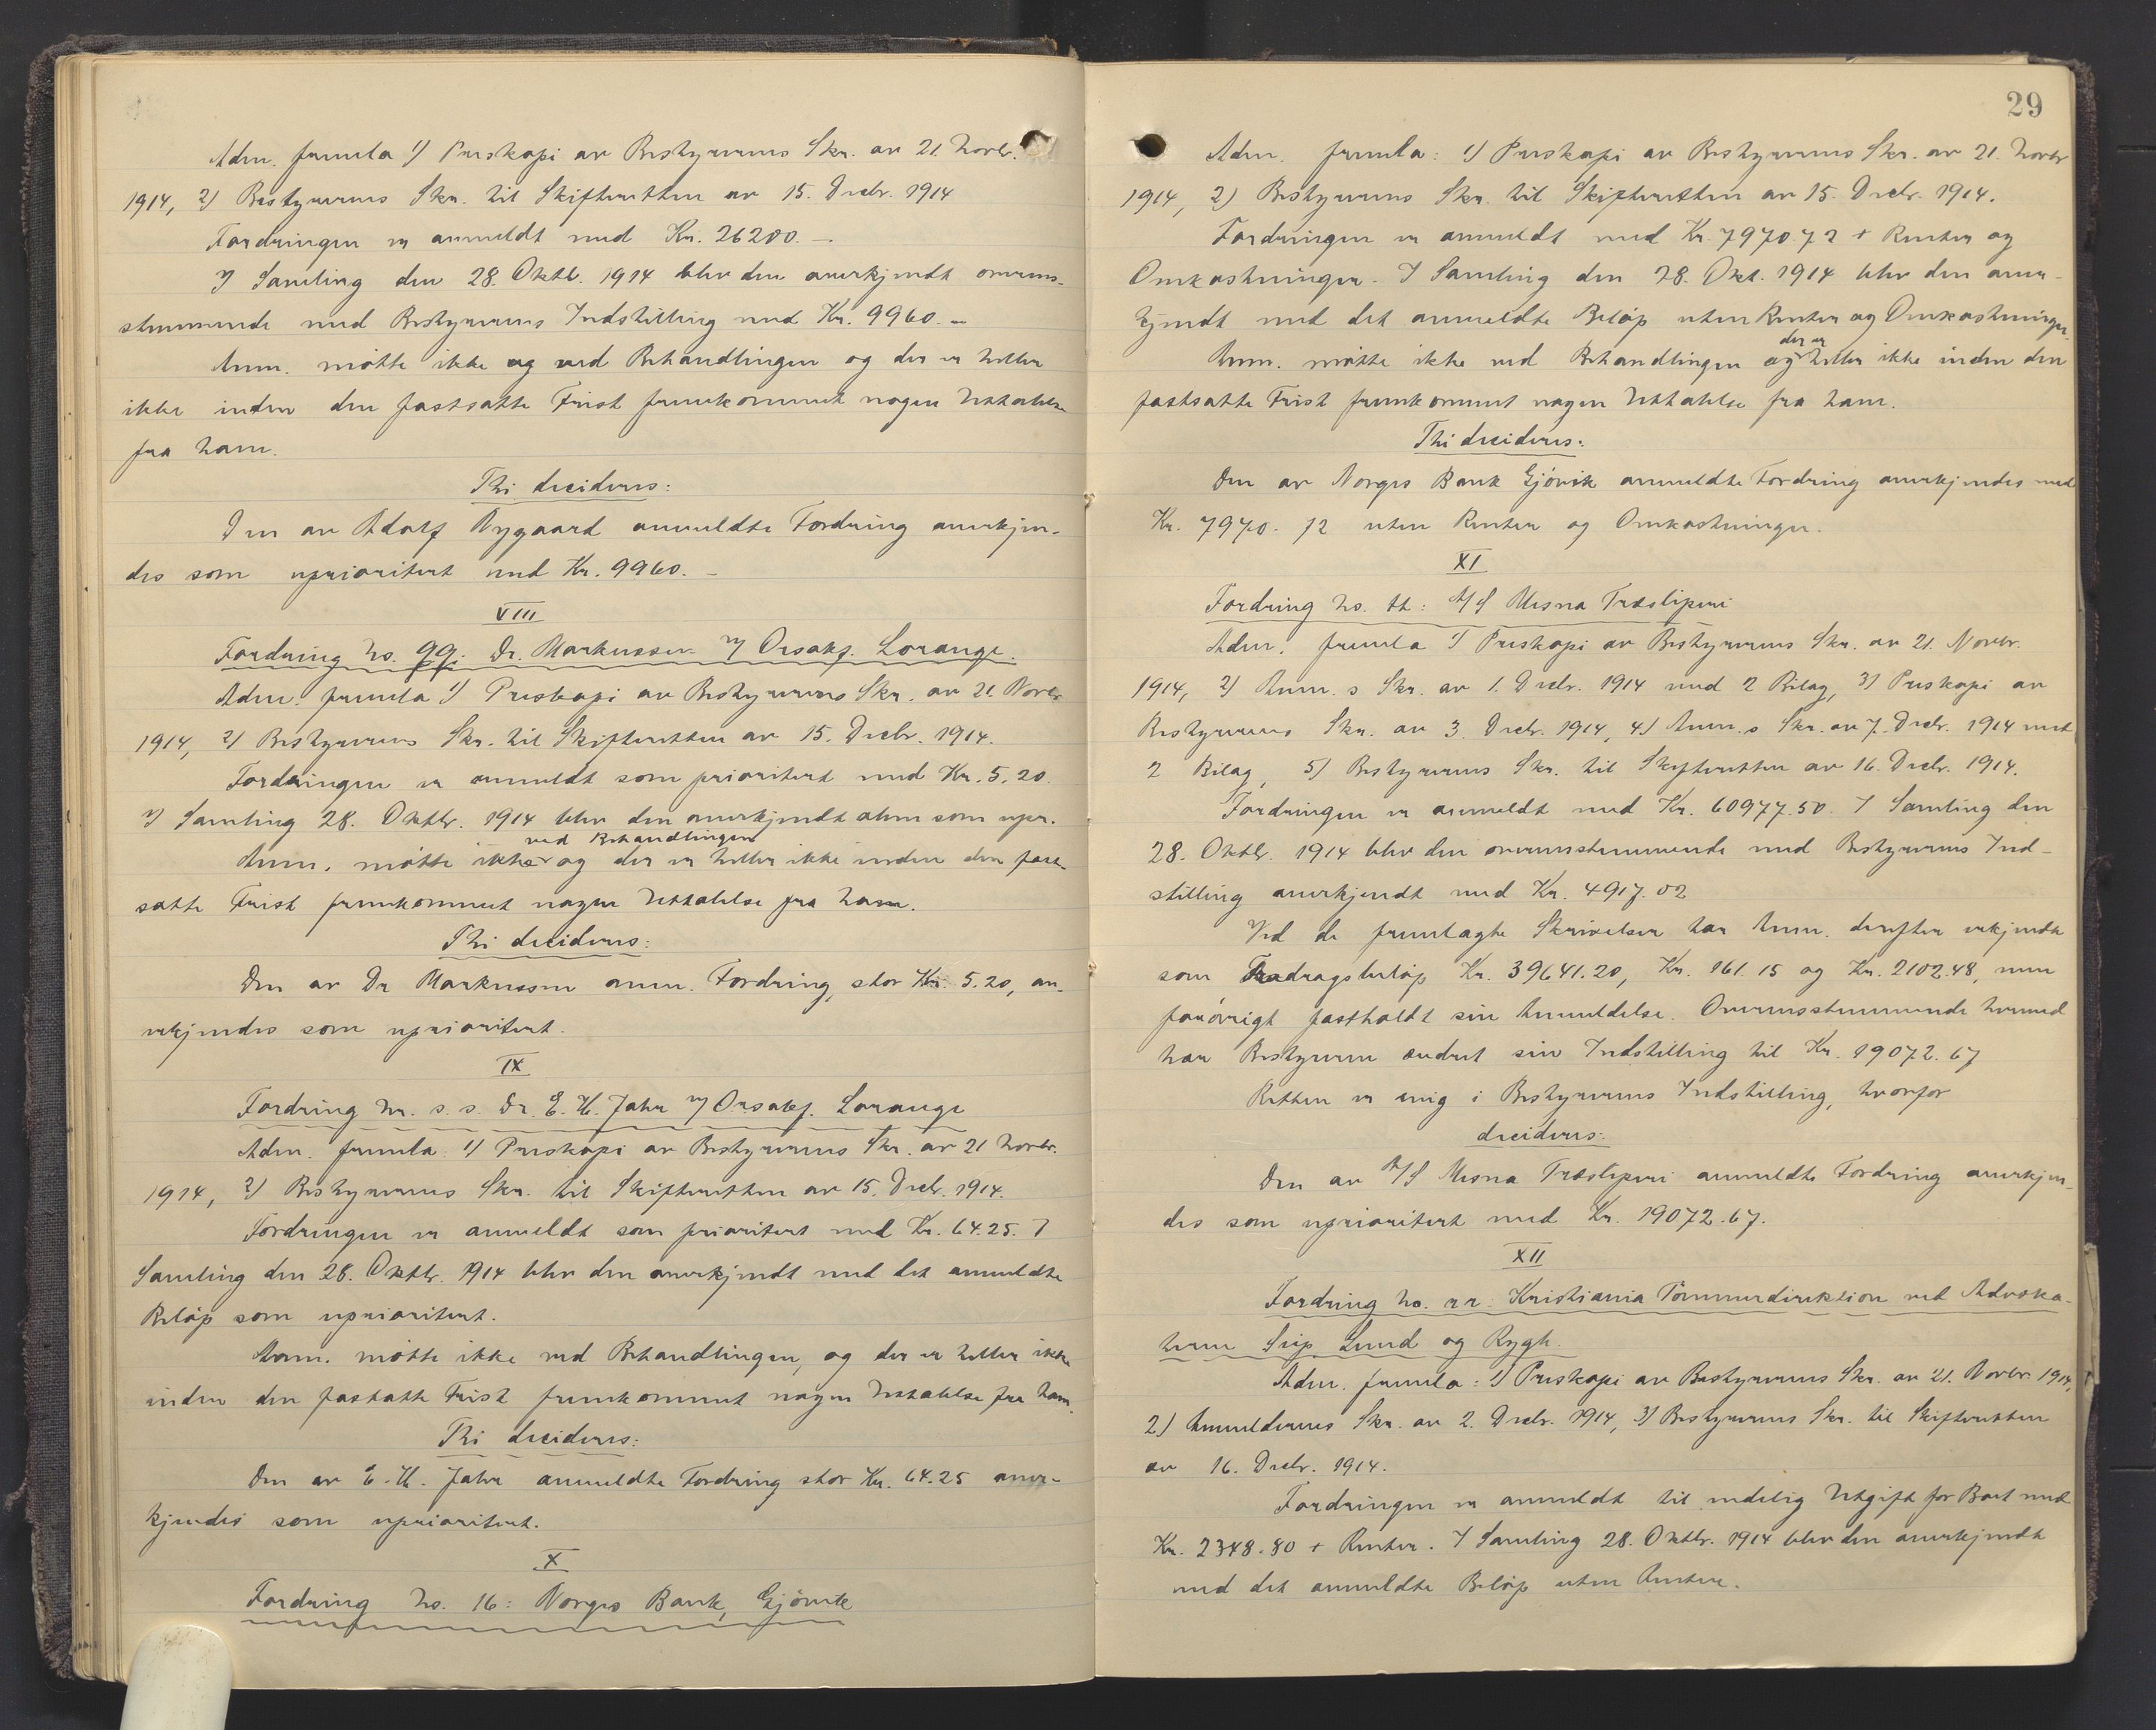 Adm. fremla 1) Preskopi av Bestyrerens Skr. av 21. Novbr.
1914, 2) Bestyrerens Skr. til Skifteretten av 15. Decbr. 1914
Fordringen er anmeldt med Kr. 26200.–
I Samling den 28. Oktb. 1914 blev den anerkjendt overens-
stemmende med Bestyrerens Indstilling med Kr. 9960.–
Anm. møtte ikke og ved Behandlingen og der er heller
ikke inden den fastsatte Frist fremkommet nogen Uttalelse
fra ham.
Thi decideres:
Den av Adolf Nygaard anmeldte Fordring anerkjen-
des som uprioritert med Kr. 9960.–
VIII
Fordring No. qq. Dr. Markussen v/ Orsakf. Lorange.
Adm. fremla 1) Preskopi av Bestyrerens Skr. av 21. Novbr.
1914, 2) Bestyrerens Skr. til Skifteretten av 15. Decbr. 1914.
Fordringen er anmeldt som prioritert med Kr. 5.20.
I Samling 28. Oktbr. 1914 blev den anerkjendt alene som upr.
Anm. møtte ikke ved Behandlingen og der er heller ikke inden den fast-
satte Frist fremkommet nogen Uttalelse fra ham.
Thi decideres:
Den av Dr Markussen anm. Fordring, stor Kr. 5.20, an-
erkjendes som uprioritert.
IX
Fordring Nr. s.s. Dr. E. H. Jahr v/ Orsakf. Lorange
Adm. fremla 1) Preskopi av Bestyrerens Skr. av 21 Novbr.
1914, 2) Bestyrerens Skr. til Skifteretten av 15. Decbr. 1914.
Fordringen er anmeldt som prioritert med Kr. 64.25. I
Samling den 28. Oktbr. 1914 blev den anerkjendt med det anmeldte
Beløp som uprioritert.
Anm. møtte ikke ved Behandlingen, og der er heller ikke
inden den fastsatte Frist fremkommet nogen Uttalelse fra ham.
Thi decideres:
Den av E. H. Jahr anmeldte Fordring stor Kr. 64.25 aner-
kjendes som uprioritert.
X
Fordring No. 16: Norges Bank, Gjøvik
29
Adm. fremla: 1) Preskopi av Bestyrerens Skr. av 21. Novbr
1914, 2) Bestyrerens Skr. til Skifteretten av 15. Decbr. 1914.
Fordringen er anmeldt med Kr. 7970.72 + Renter og
Omkostninger. I Samling den 28. Okt. 1914 blev den aner-
kjendt med det anmeldte Beløp uten Renter og Omkostninger.
Anm. møtte ikke ved Behandlingen og der er heller ikke inden den
fastsatte Frist fremkommet nogen Uttalelse fra ham.
Thi decideres:
Den av Norges Bank Gjøvik anmeldte Fordring anerkjendes med
Kr. 7970.72 uten Renter og Omkostninger.
XI
Fordring No. tt: A/S Mesna Træsliperi
Adm. fremla 1) Preskopi av Bestyrerens Skr. av 21. Novbr.
1914, 2) Anm.s Skr. av 1. Decbr. 1914 med 2 Bilag, 3) Preskopi av
Bestyrerens Skr. av 3. Decbr. 1914, 4) Anm.s Skr. av 7. Decbr. 1914 med
2 Bilag, 5) Bestyrerens Skr. til Skifteretten av 16. Decbr. 1914.
Fordringen er anmeldt med Kr. 60977.50. I Samling den
28. Oktbr. 1914 blev den overensstemmende med Bestyrerens Ind-
stilling anerkjendt med Kr. 4917.02
Ved de fremlagte Skrivelser har Anm. derefter erkjendt
som Fradragsbeløp Kr. 39641.20, Kr. 161.15 og Kr. 2102.48, men
forøvrigt fastholdt sin Anmeldelse. Overensstemmende hermed
har Bestyreren ændret sin Indstilling til Kr. 19072.67
Retten er enig i Bestyrerens Indstilling, hvorfor
decideres:
Den av A/S Mesna Træsliperi anmeldte Fordring anerkjen-
des som uprioritert med Kr. 19072.67.
XII
Fordring No. rr. Kristiania Tømmerdirektion ved Advoka-
terne Seip, Lund og Rygh.
Adm. fremla: 1) Preskopi av Bestyrerens Skr. av 21. Novbr. 1914,
2) Anmeldernes Skr. av 2. Decbr. 1914, 3) Bestyrerens Skr. til Skifteretten
av 16. Decbr. 1914.
Fordringen er anmeldt til endelig Utgift for Boet med
Kr. 2348.80 + Renter. I Samling 28. Oktbr. 1914 blev den anerkjendt
med det anmeldte Beløp uten Renter.